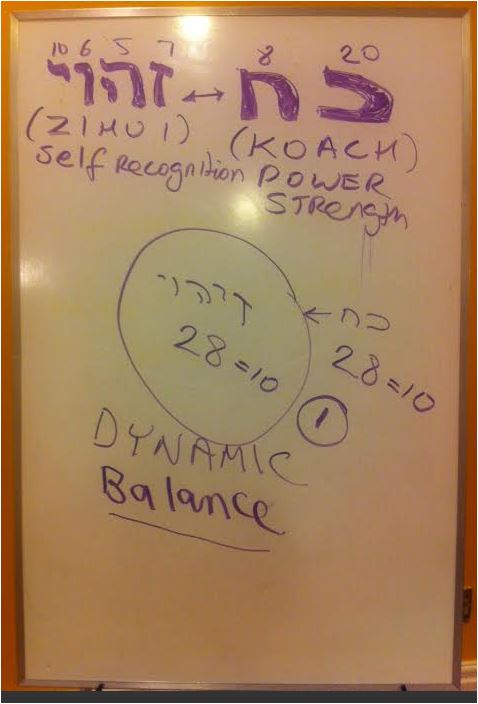 10 6 5 7 8 20
זהוי ↔ כח
(ZIHUI) (KOACH)
Self Recognition POWER
STRength
זיהוי ← כח
28=10 28=10
1
DYNAMIC
Balance